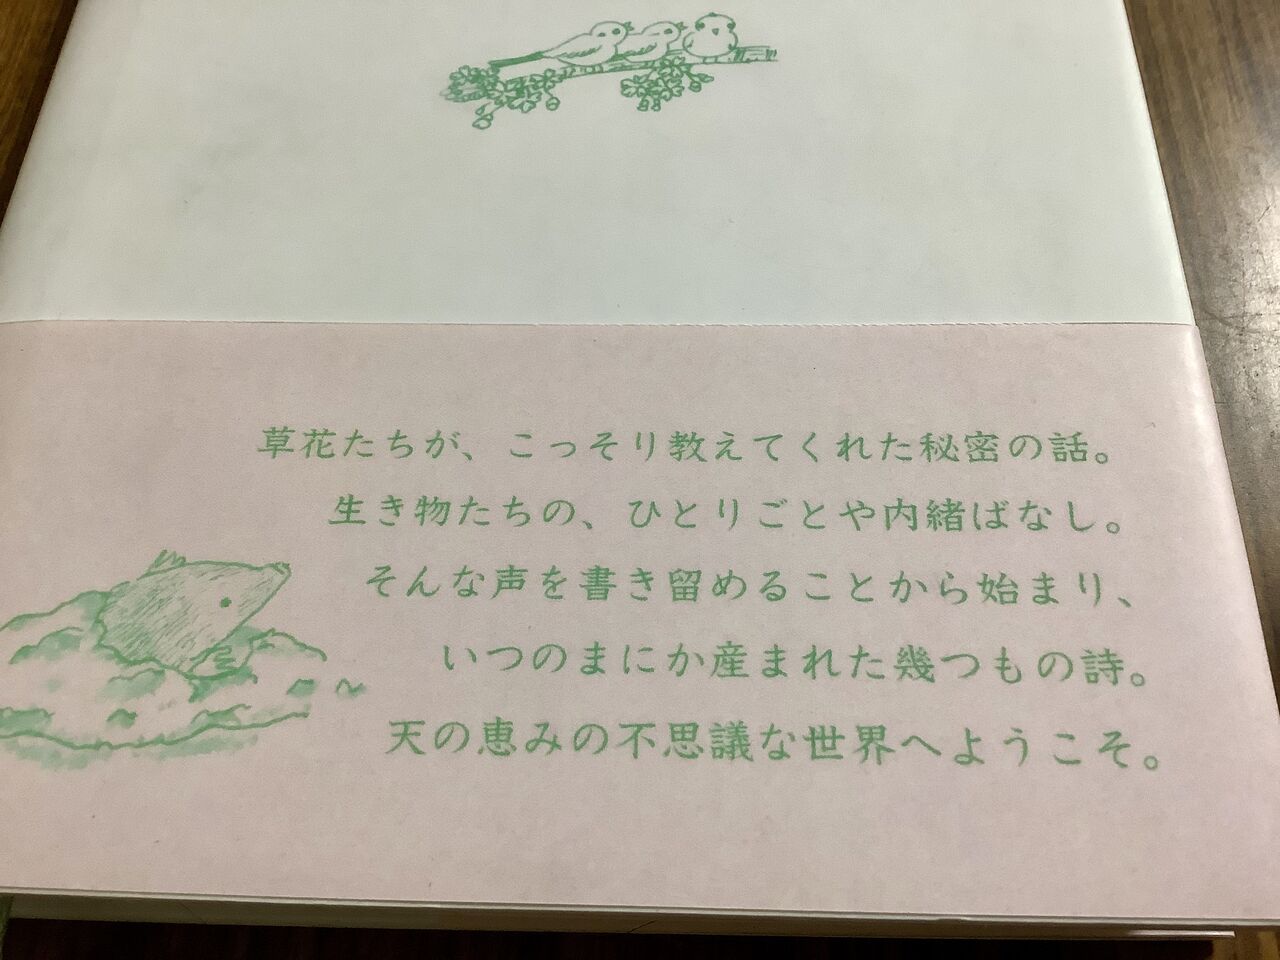 草花たちが、こっそり教えてくれた秘密の話。
生き物たちの、ひとりごとや内緒ばなし。
そんな声を書き留めることから始まり、
いつのまにか産まれた幾つもの詩。
天の恵みの不思議な世界へようこそ。